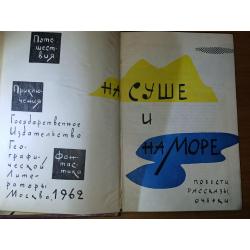 Путе-
шест-
вия
Приклю-
чения
Государственное
Издательство
Гео-
графи-
ческой
Лите-
ратуры
Москва, 1962
Фан-
тас-
тика
НА СУШЕ
И
НА МОРЕ
ПОВЕСТИ
РАССКАЗЫ
ОЧЕРКИ